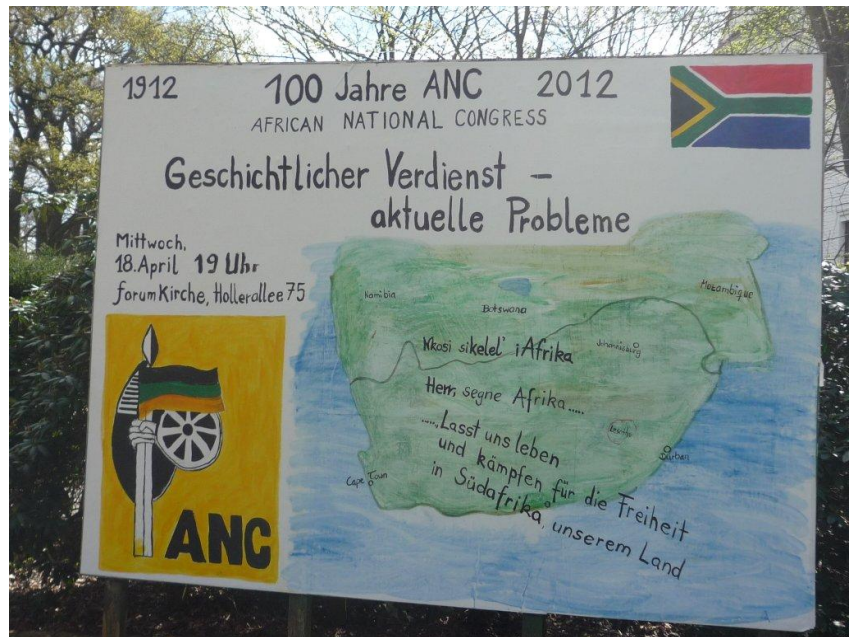 1912 100 Jahre ANC 2012
AFRICAN NATIONAL CONGRESS
Geschichtlicher Verdienst –
aktuelle Probleme
Mittwoch,
18. April 19 Uhr
forum Kirche, Hollerallee 75
Namibia
Botswana
Mozambique
Johannisburg
Nkosi sikelel' iAfrika
Herr, segne Afrika.....
....., Lasst uns leben
und kämpfen für die Freiheit
in Südafrika, unserem Land
Lesotho
Durban
Cape Town
ANC